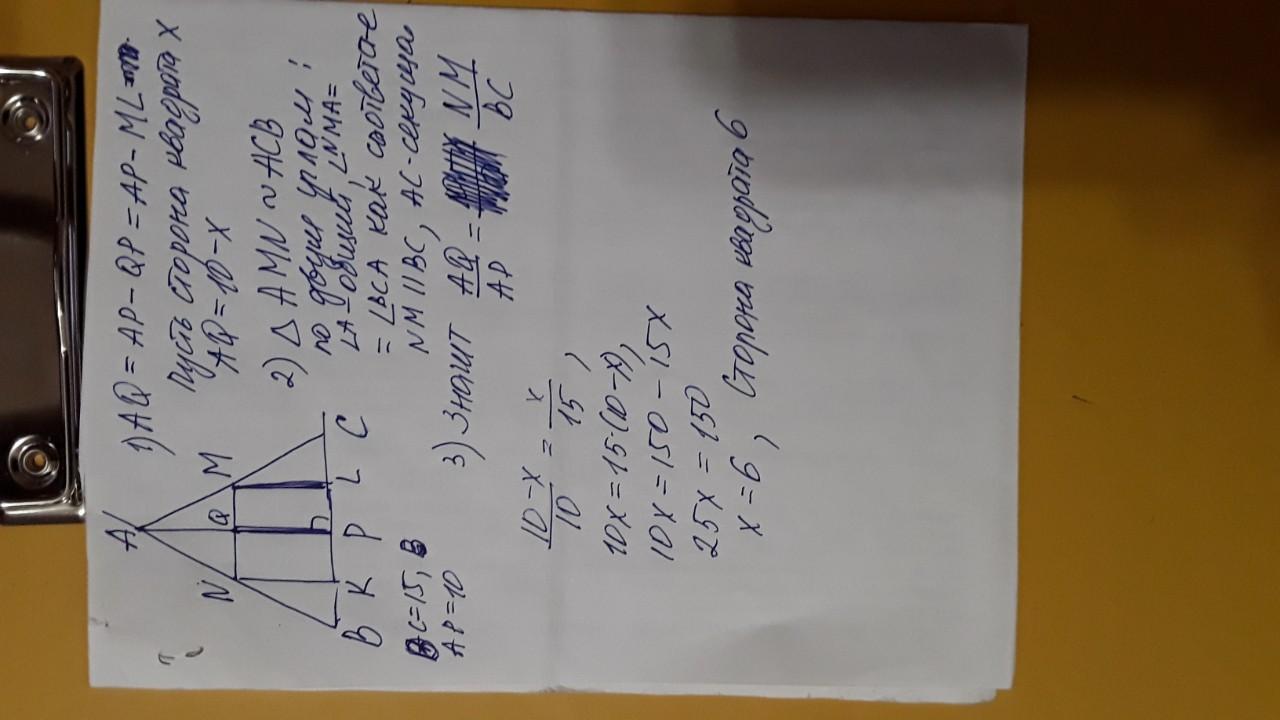 1) AQ = AP - QP = AP - ML
Пусть сторона квадрата x
AQ = 10 - x
2) △ AMN ~ ACB
по двум углам :
∠A общий ∠NMA=
= ∠BCA как соответств-е
NM || BC, AC-секущая
3) Значит AQ/AP = NM/BC
A
N Q M
B K P L C
BC=15,
AP=10
(10-x)/10 = x/15 ,
10x = 15·(10-x),
10x = 150 - 15x
25x = 150
x = 6 , Сторона квадрата 6